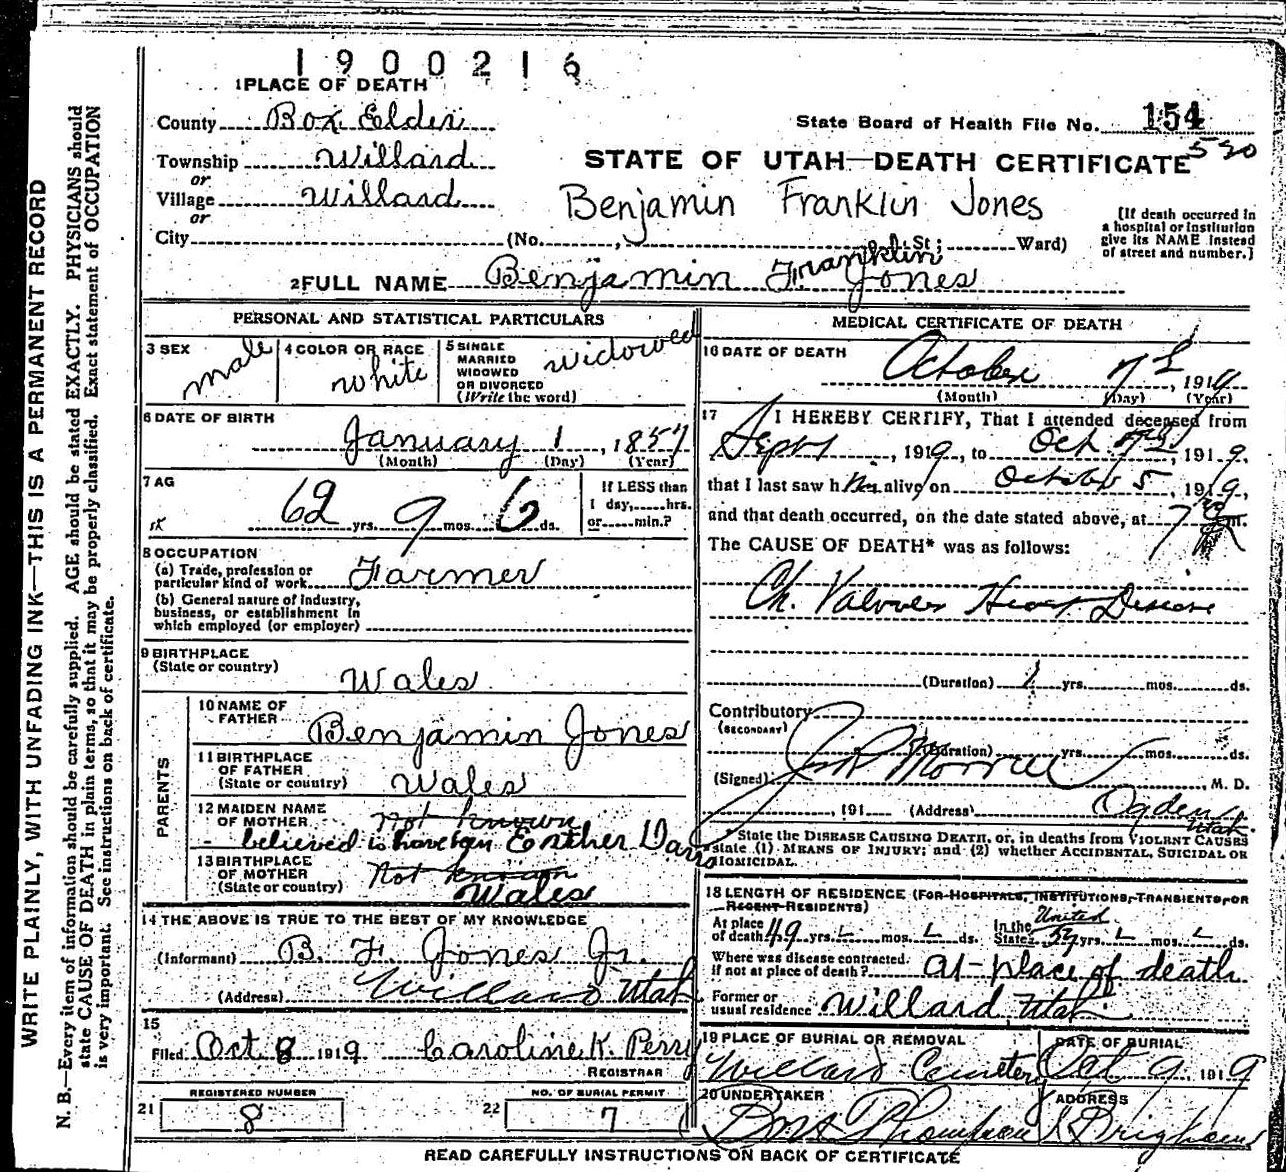 1900216
1 PLACE OF DEATH
County Box Elder
State Board of Health File No. 154
520
Township Willard
STATE OF UTAH—DEATH CERTIFICATE
or
Village Willard
Benjamin Franklin Jones
or
City (No. , St; Ward)
[If death occurred in a hospital or institution give its NAME instead of street and number.]
Franklin
2 FULL NAME Benjamin F. Jones
PERSONAL AND STATISTICAL PARTICULARS
3 SEX male
4 COLOR OR RACE white
5 SINGLE MARRIED WIDOWED OR DIVORCED (Write the word) widowed
6 DATE OF BIRTH
January 1, 1857
(Month) (Day) (Year)
7 AG
62 yrs. 9 mos. 6 ds.
If LESS than 1 day, hrs. or min.?
8 OCCUPATION
(a) Trade, profession or particular kind of work Farmer
(b) General nature of industry, business, or establishment in which employed (or employer)
9 BIRTHPLACE
(State or country)
Wales
PARENTS
10 NAME OF FATHER
Benjamin Jones
11 BIRTHPLACE OF FATHER (State or country) Wales
12 MAIDEN NAME OF MOTHER Not known
- believed to have been Esther Davis
13 BIRTHPLACE OF MOTHER (State or country) Not known
Wales
14 THE ABOVE IS TRUE TO THE BEST OF MY KNOWLEDGE
(Informant) B. F. Jones Jr.
(Address) Willard Utah
15
Filed Oct 8 1919 Caroline K. Perry
REGISTRAR
REGISTERED NUMBER
21 8
NO. OF BURIAL PERMIT
22 7
MEDICAL CERTIFICATE OF DEATH
16 DATE OF DEATH
October 7, 1919
(Month) (Day) (Year)
17 I HEREBY CERTIFY, That I attended deceased from
Sept, 1919, to Oct 1919,
that I last saw him alive on October 5, 1919,
and that death occurred, on the date stated above, at 7 m.
The CAUSE OF DEATH* was as follows:
Ch. Valvular Heart Disease
(Duration) 1 yrs. mos. ds.
Contributory
(SECONDARY)
(Duration) yrs. mos. ds.
(Signed) Morrell M. D.
, 191 (Address) Ogden Utah.
* State the DISEASE CAUSING DEATH, or, in deaths from VIOLENT CAUSES
state (1) MEANS OF INJURY; and (2) whether ACCIDENTAL, SUICIDAL OR
HOMICIDAL.
18 LENGTH OF RESIDENCE (FOR HOSPITALS, INSTITUTIONS, TRANSIENTS, OR RECENT RESIDENTS)
At place of death 49 yrs. mos. ds. In the United State yrs. mos. ds.
Where was disease contracted. If not at place of death? at place of death
Former or usual residence Willard Utah
19 PLACE OF BURIAL OR REMOVAL
Willard Cemetery
DATE OF BURIAL
Oct 9 1919
20 UNDERTAKER
Thompson
ADDRESS
Brigham
READ CAREFULLY INSTRUCTIONS ON BACK OF CERTIFICATE
WRITE PLAINLY, WITH UNFADING INK—THIS IS A PERMANENT RECORD
N. B.—Every item of information should be carefully supplied. AGE should be stated EXACTLY. PHYSICIANS should
state CAUSE OF DEATH in plain terms, so that it may be properly classified. Exact statement of OCCUPATION
is very important. See instructions on back of certificate.